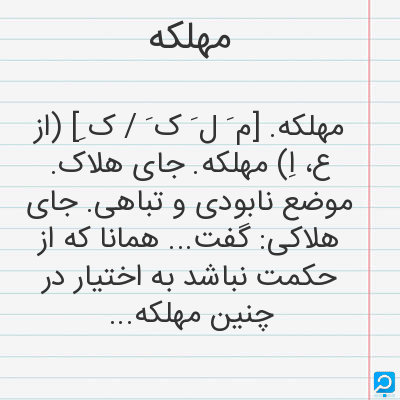 مهلکه
مهلکه. [م َ ل َ ک َ / ک ِ] (از
ع، اِ) مهلکه. جای هلاک.
موضع نابودی و تباهی. جای
هلاکی: گفت... همانا که از
حکمت نباشد به اختیار در
چنین مهلکه...